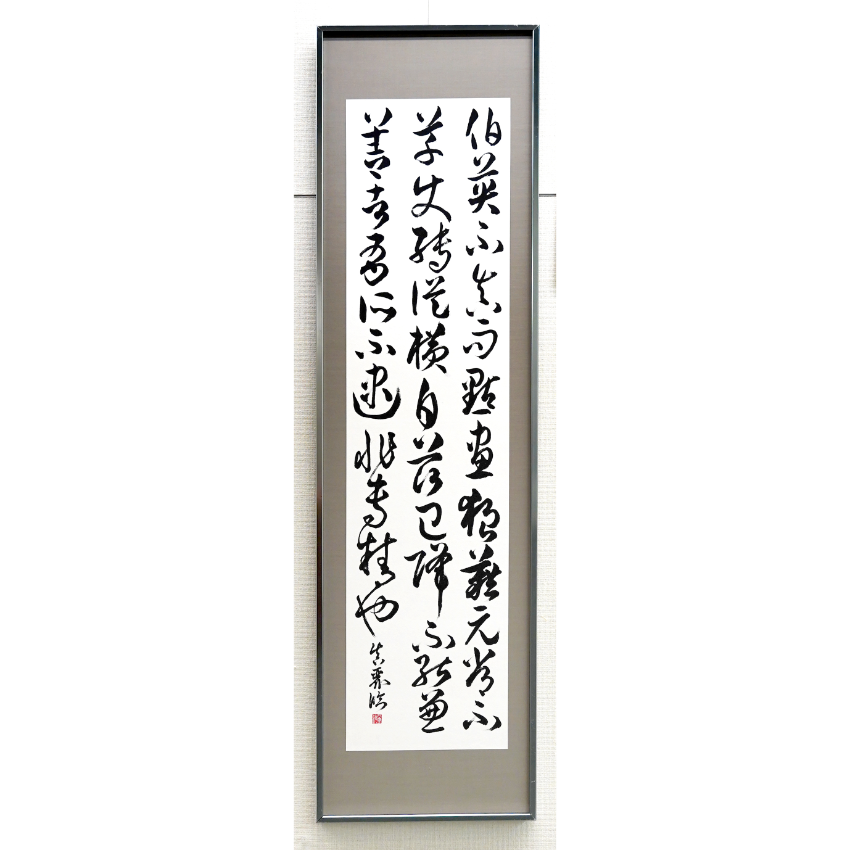 伯英不真而點畫狼藉元常不
草使轉縱横自茲已降不能兼
善者有所不逮非專精也
臨